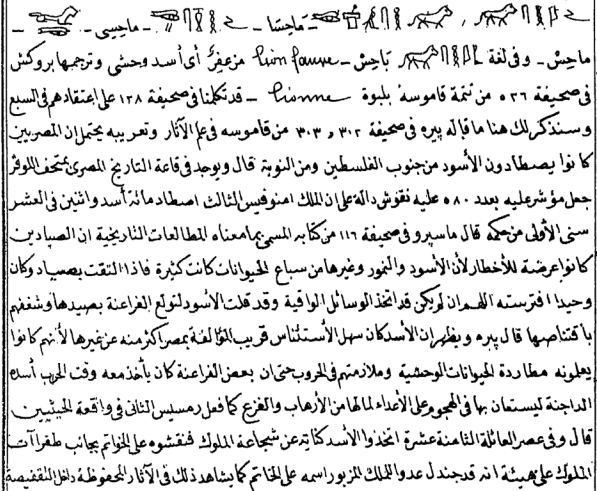 ماحسا - ماحیسی -
ماحِسْ - وفى لغة بَاحِسْ - lion fauve مزعفِرُ أى أسد وحشى وترجمها بروكش
فى صحيفة ٥٣٦ من تتمة قاموسه بلبوة lionne - قد تكلمنا فى صحيفة ١٢٨ على اعتقادهم فى السبع
وسنذكر لك هنا ما قاله پيره فى صحيفة ٣٠٢ و ٣٠٣ من قاموسه فى علم الآثار وتعريبه يحتمل ان المصريين
كانوا يصطادون الأسود من جنوب الفلسطين ومن النوبة قال ويوجد فى قاعة التاريخ المصرى بمتحف اللوفر
جعل مؤشر عليه بعدد ٥٨٠ عليه نقوش دالة على ان الملك امنوفيس الثالث اصطاد مائة أسد واثنين فى العشر
سنى الأولى من حكمه قال ماسپرو فى صحيفة ١١٦ من كتابه المسمى بما معناه المطالعات التاريخية ان الصيادين
كانوا عرضة للأخطار لأن الأسود والنمور وغيرها من سباع الحيوانات كانت كثيرة فاذا التقت بصياد وكان
وحيدا افترسته اللهم ان لم يكن قد اتخذ الوسائل الواقية وقد قلت الأسود لتولع الفراعنة بصيدها وشغفهم
باقتناصها قال پيره ويظهر ان الأسد كان سهل الأستئناس قريب المؤالفة بمصر اكثر منه عن غيرها لأنهم كانوا
يعلونه مطاردة الحيوانات الوحشية وملازمتهم فى الحروب حتى ان بعض الفراعنة كان يأخذ معه وقت الحرب أسده
الداجنة ليستعان بها فى الهجوم على الأعداء لما لها من الأرهاب والفزع كما فعل رمسيس الثانى فى واقعة الحيثيين
قال وفى عصر العائلة الثامنة عشرة اتخذوا الأسد كناية عن شجاعة الملوك فنقشوه على الخواتم بجانب طغراآت
الملوك على هيئة انه قد جندل عدو الملك المزبور اسمه على الخاتم كما يشاهد ذلك فى الآثار المحفوظة داخل التقفيصة